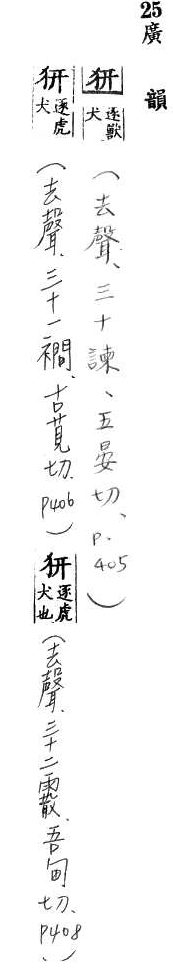 25廣韻
㹩 逐獸犬（去聲、三十諫、五晏切、p.405）
㹩 逐虎犬（去聲、三十一襉、古莧切、P406）㹩 逐虎犬也（去聲、三十二霰、吾甸切、P408）